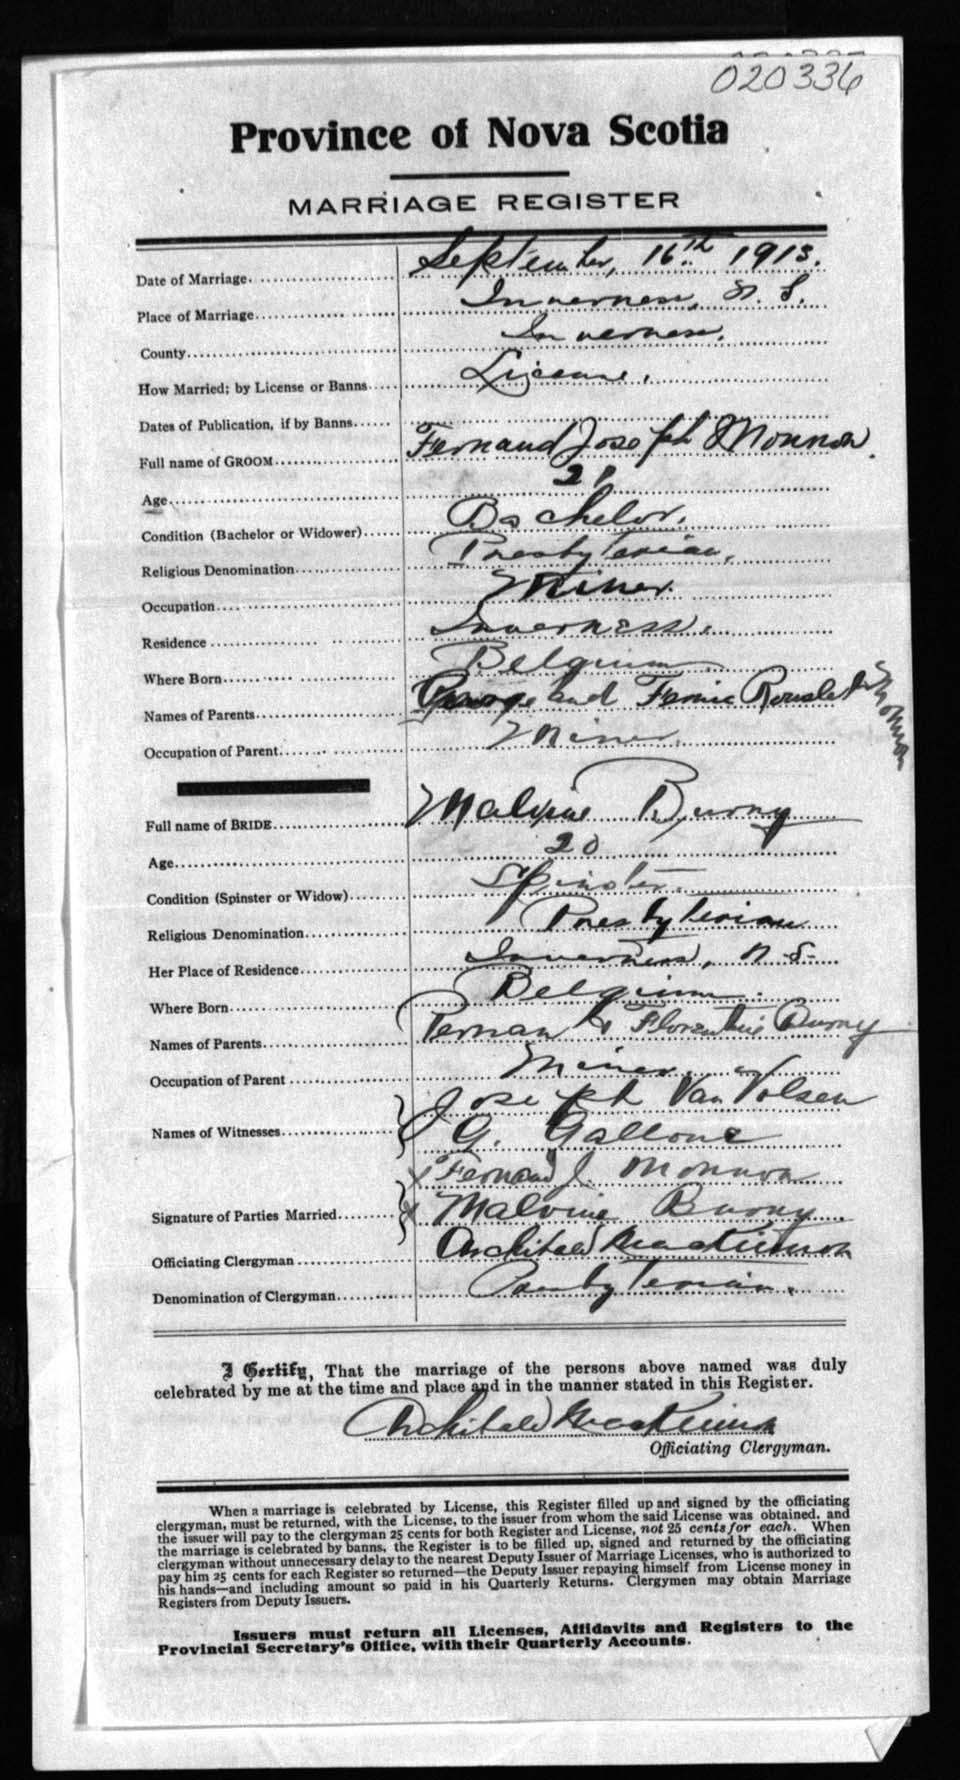 020336
Province of Nova Scotia
MARRIAGE REGISTER
Date of Marriage September, 16th 1913.
Place of Marriage Inverness, N. S.
County Inverness.
How Married; by License or Banns License.
Dates of Publication, if by Banns
Full name of GROOM Fernand Joseph Monnon.
Age 21
Condition (Bachelor or Widower) Bachelor.
Religious Denomination Presbyterian.
Occupation Miner.
Residence Inverness.
Where Born Belgium
Names of Parents George and Fernie Monnon
Occupation of Parent Miner.
Full name of BRIDE Malvine Burny
Age 20
Condition (Spinster or Widow) Spinster.
Religious Denomination Presbyterian
Her Place of Residence Inverness, N. S.
Where Born Belgium.
Names of Parents & Florentine Burny
Occupation of Parent Miner.
Names of Witnesses Joseph Van Volsen
G. Gallone
x Fernand J. Monnon
Signature of Parties Married x Malvine Burny
Officiating Clergyman Archibald MacKinnon
Denomination of Clergyman Presbyterian.
I Certify, That the marriage of the persons above named was duly
celebrated by me at the time and place and in the manner stated in this Register.
Archibald MacKinnon
Officiating Clergyman.
When a marriage is celebrated by License, this Register filled up and signed by the officiating
clergyman, must be returned, with the License, to the issuer from whom the said License was obtained, and
the issuer will pay to the clergyman 25 cents for both Register and License, not 25 cents for each. When
the marriage is celebrated by banns, the Register is to be filled up, signed and returned by the officiating
clergyman without unnecessary delay to the nearest Deputy Issuer of Marriage Licenses, who is authorized to
pay him 25 cents for each Register so returned—the Deputy Issuer repaying himself from License money in
his hands—and including amount so paid in his Quarterly Returns. Clergymen may obtain Marriage
Registers from Deputy Issuers.
Issuers must return all Licenses, Affidavits and Registers to the
Provincial Secretary's Office, with their Quarterly Accounts.